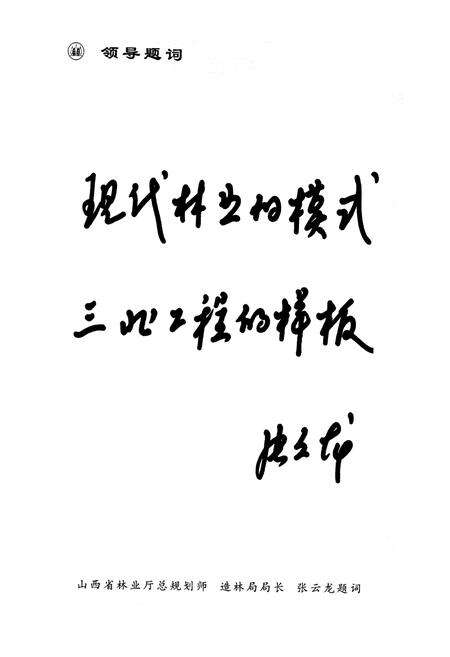 领导题词
现代林业的模式
三北工程的样板
张云龙
山西省林业厅总规划师 造林局局长 张云龙题词